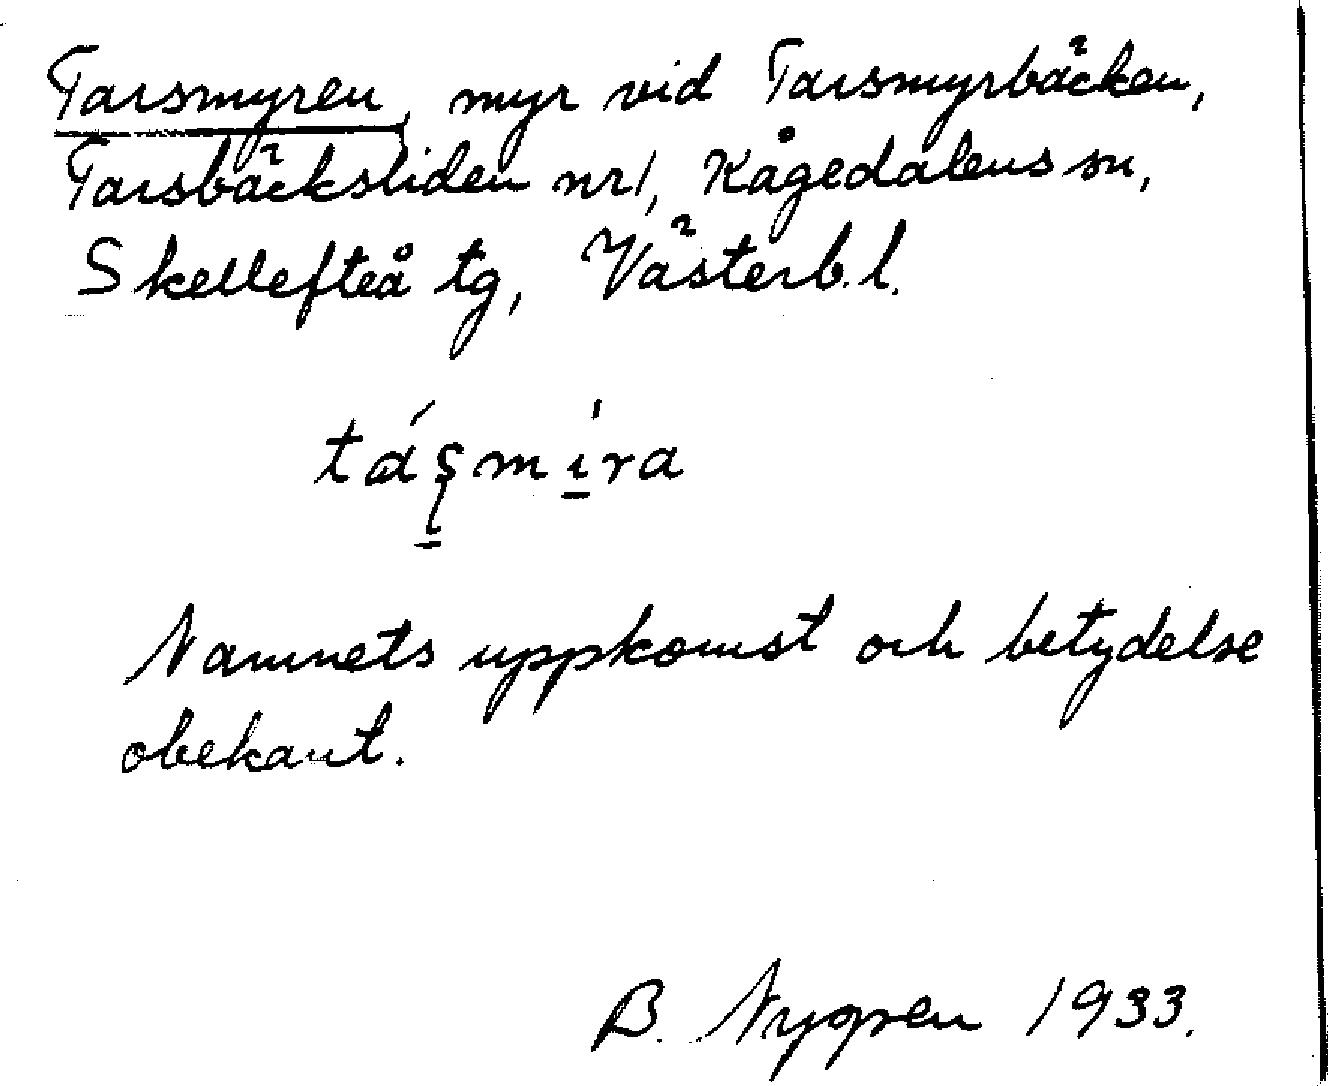 Tarsmyren, myr vid Tarsmyrbäcken,
Tarsbäcksliden nr 1, Kågedalens sn,
Skellefteå tg, Västerb. l.
táʂmı̱̍ra
Namnets uppkomst och betydelse
obekant.
B. Nygren 1933.